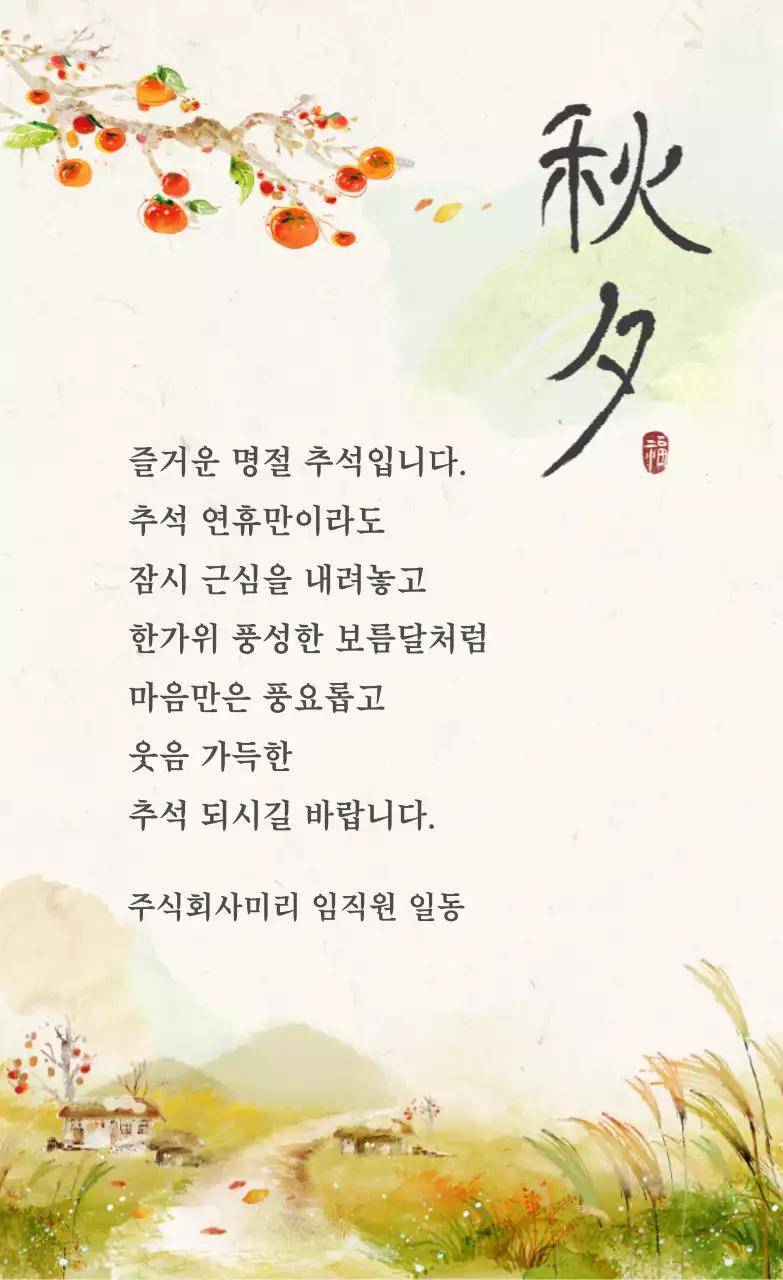 秋夕
福
즐거운 명절 추석입니다.
추석 연휴만이라도
잠시 근심을 내려놓고
한가위 풍성한 보름달처럼
마음만은 풍요롭고
웃음 가득한
추석 되시길 바랍니다.
주식회사미리 임직원 일동